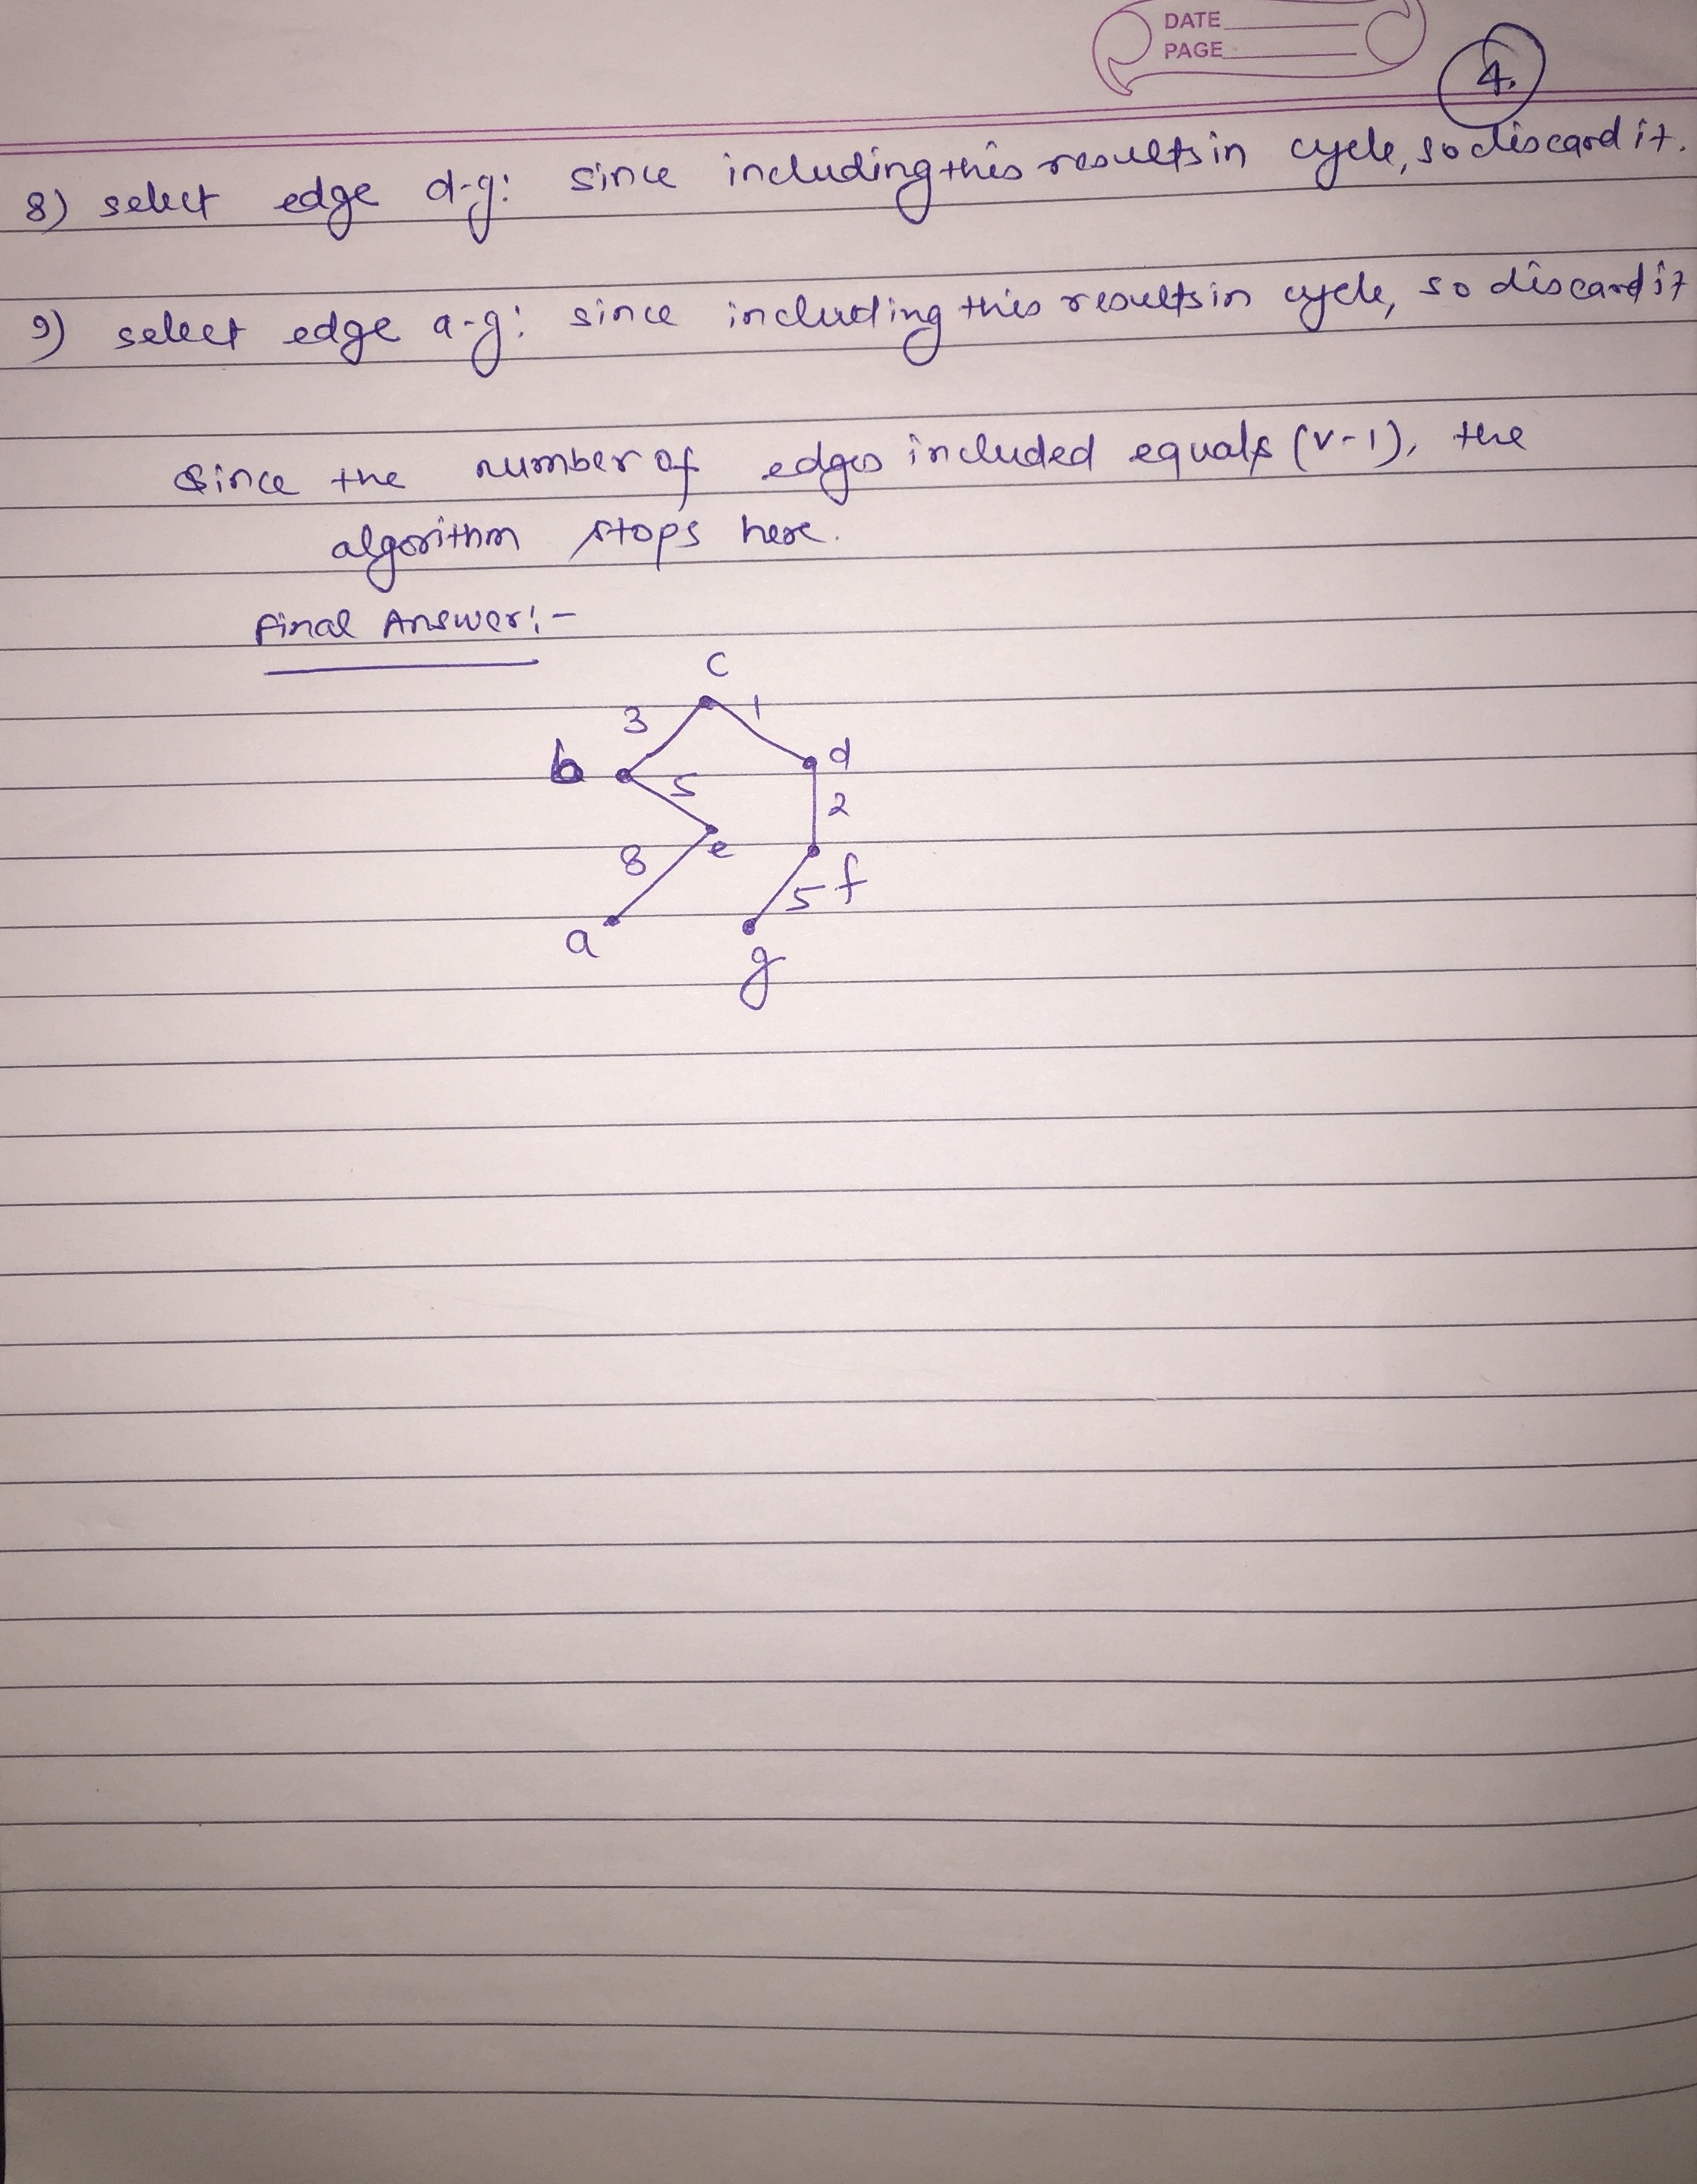 DATE
PAGE
4.
8) select edge d-g: since including this results in cycle, so discard it.
9) select edge a-g: since including this results in cycle, so discard it
Since the number of edges included equals (v-1), the
algorithm stops here.
Final Answer:-
c
3 1
b d
5
2
e
8
5 f
a
g